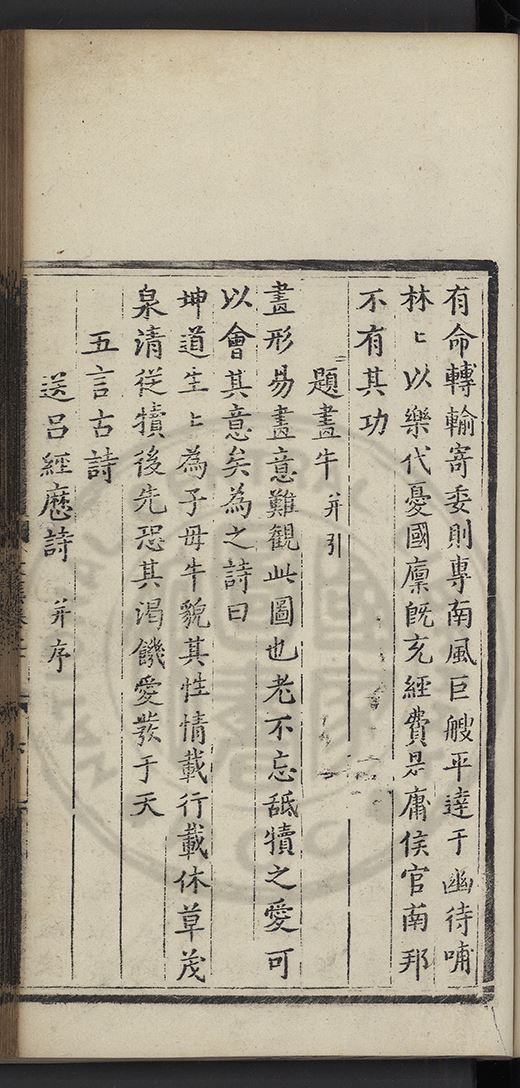 有命轉輸寄委則專南風巨艘平達于幽待哺
林〻以樂代憂國廩既充經費是庸侯官南邦
不有其功
題畫牛 并引
畫形易畫意難觀此圖也老不忘舐犢之愛可
以會其意矣為之詩曰
坤道生〻為子母牛貌其性情載行載休草茂
泉清從犢後先恐其渴饑愛發于天
五言古詩
送呂經歷詩 并序